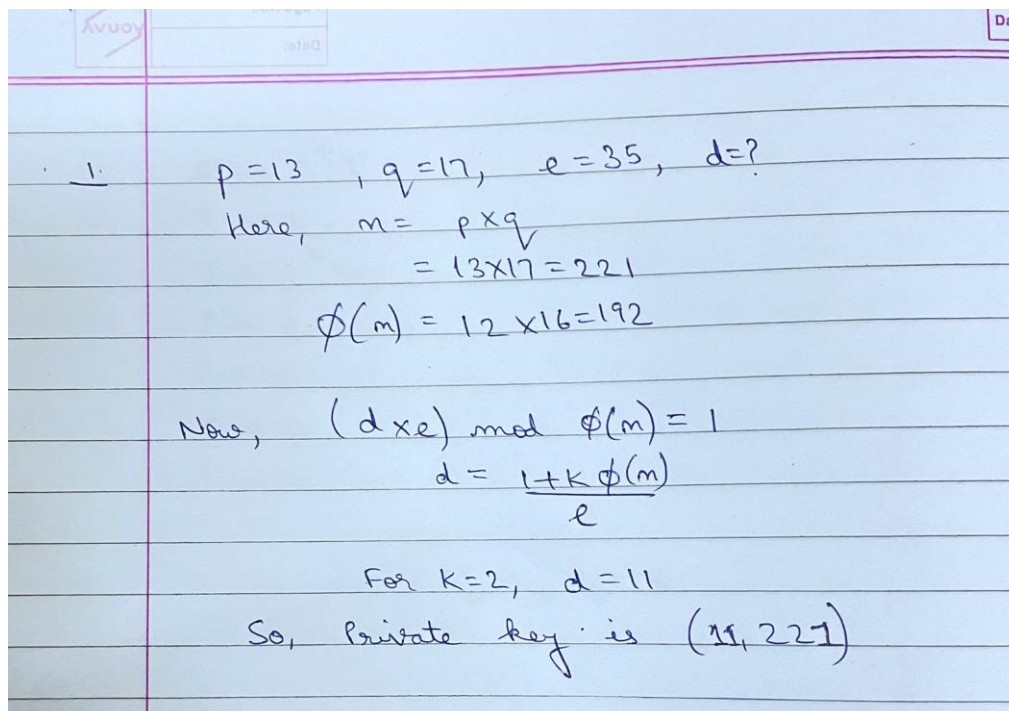 Da
1. p=13 , q=17, e=35, d=?
Here, n= p×q
= 13×17=221
ϕ(n) = 12×16=192
Now, (d×e) mod ϕ(n) = 1
d = 1+Kϕ(n)
e
For K=2, d=11
So, Private key is (11, 221)